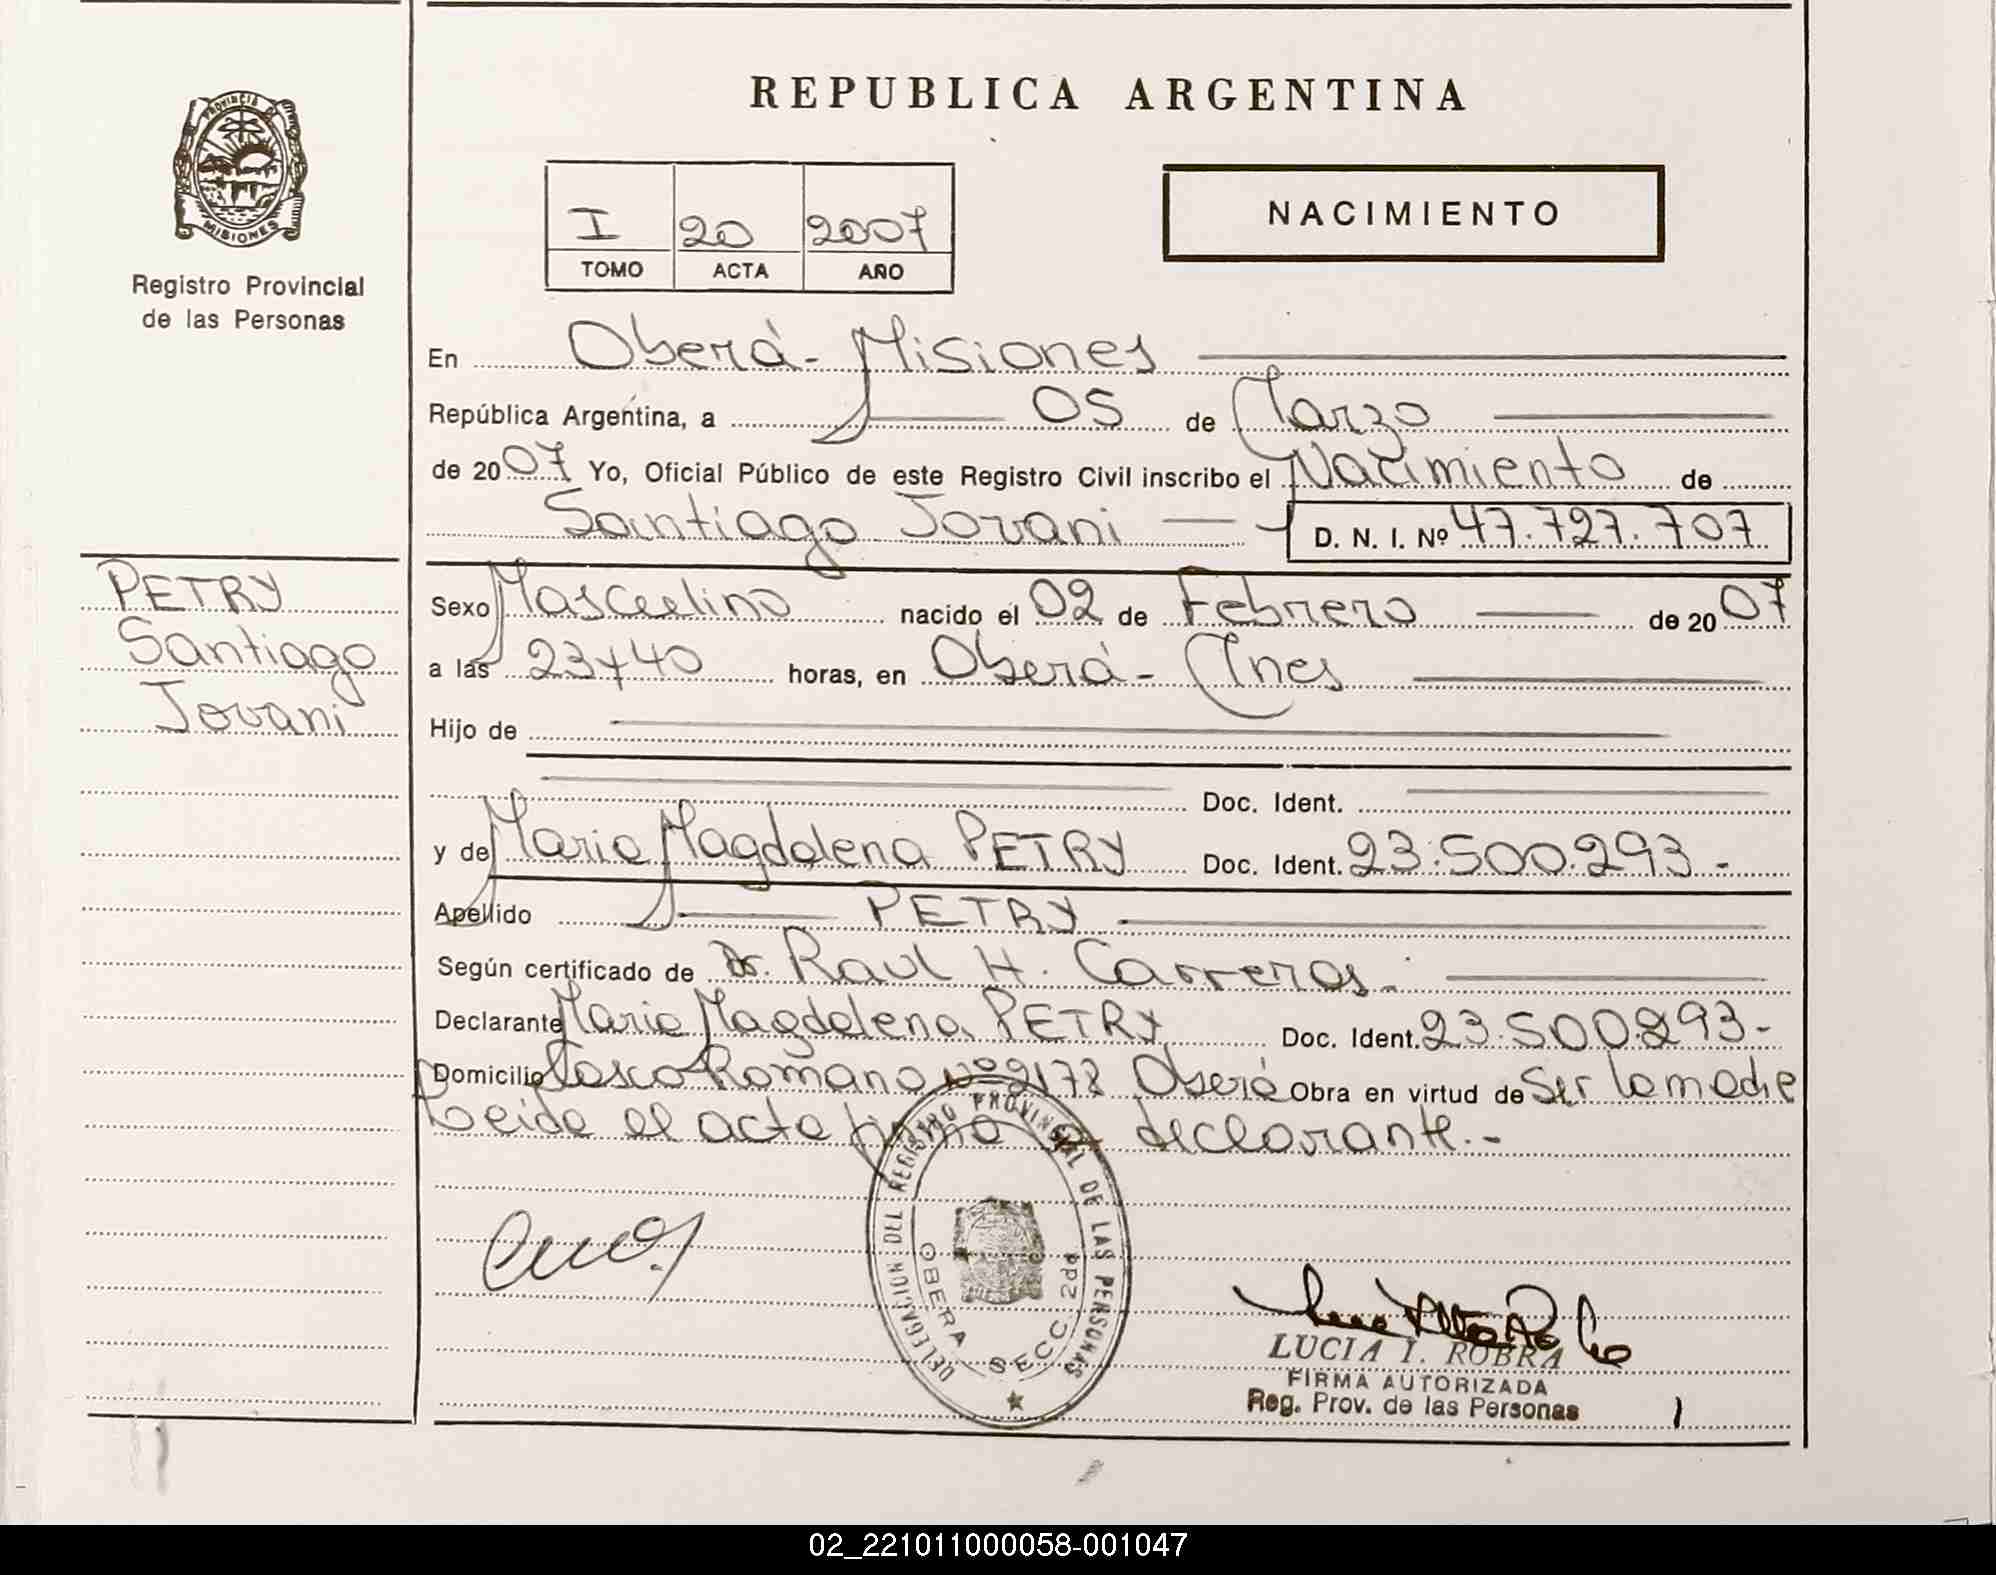 REPUBLICA ARGENTINA
PROVINCIA DE MISIONES
Registro Provincial
de las Personas
I 20 2007
TOMO ACTA AÑO
NACIMIENTO
En Oberá- Misiones
República Argentina, a 05 de Marzo
de 2007 Yo, Oficial Público de este Registro Civil inscribo el Nacimiento de
Santiago Jovani D. N. I. Nº 47.727.707
PETRY
Santiago
Jovani
Sexo Masculino nacido el 02 de Febrero de 2007
a las 23y40 horas, en Oberá- Mnes
Hijo de
Doc. Ident.
y de Maria Magdalena PETRY Doc. Ident. 23.500.293-
Apellido PETRY
Según certificado de Dr. Raul H. Carreras.
Declarante Maria Magdalena PETRY Doc. Ident. 23.500.293-
Domicilio Vasco Romano Nº 2178 Oberá Obra en virtud de Ser la madre
Leida el acta firma la declarante.-
DELEGACION DEL REGISTRO PROVINCIAL DE LAS PERSONAS
OBERA SECC. 2da
LUCIA I. ROBRA
FIRMA AUTORIZADA
Reg. Prov. de las Personas
02_221011000058-001047